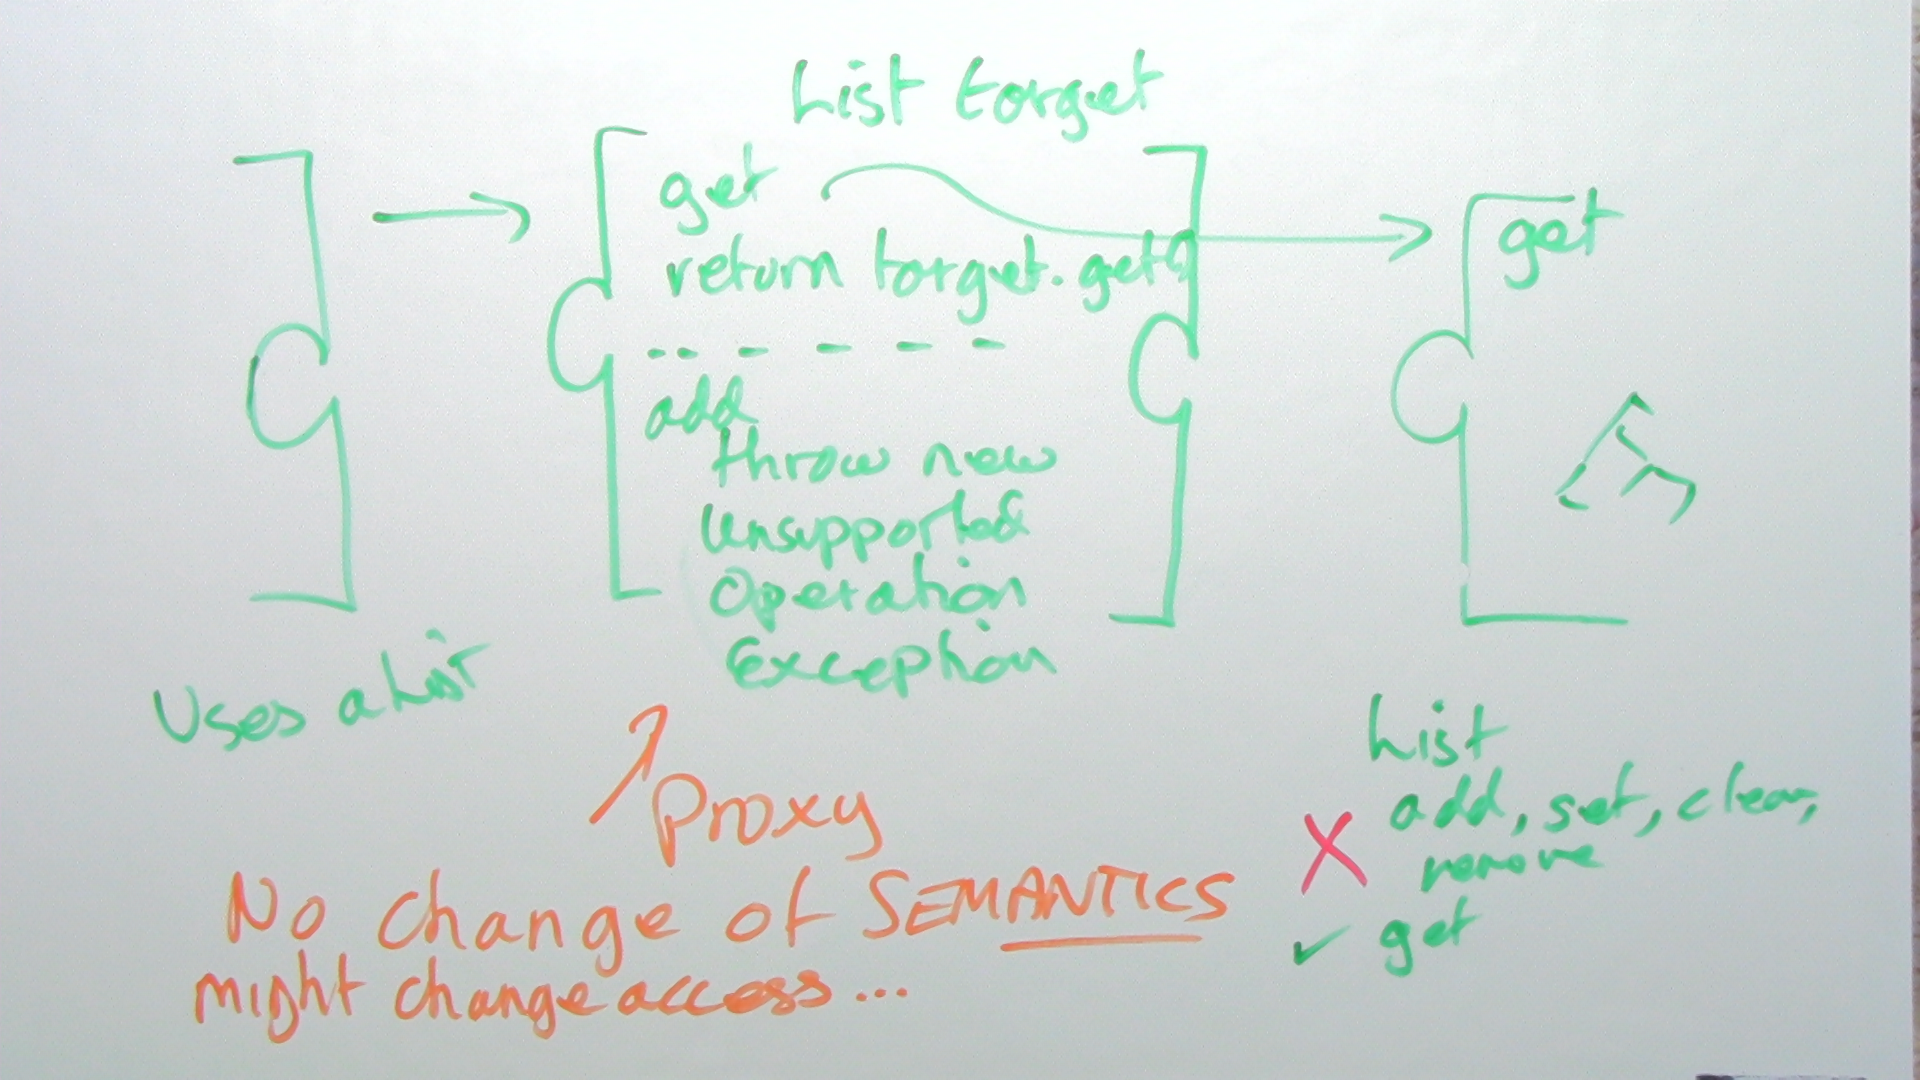 List target
get
return target.get()
get
add
throw new
Unsupported
Operation
Exception
Uses a List
Proxy
No change of SEMANTICS
might change access...
List
add, set, clear,
remove
get